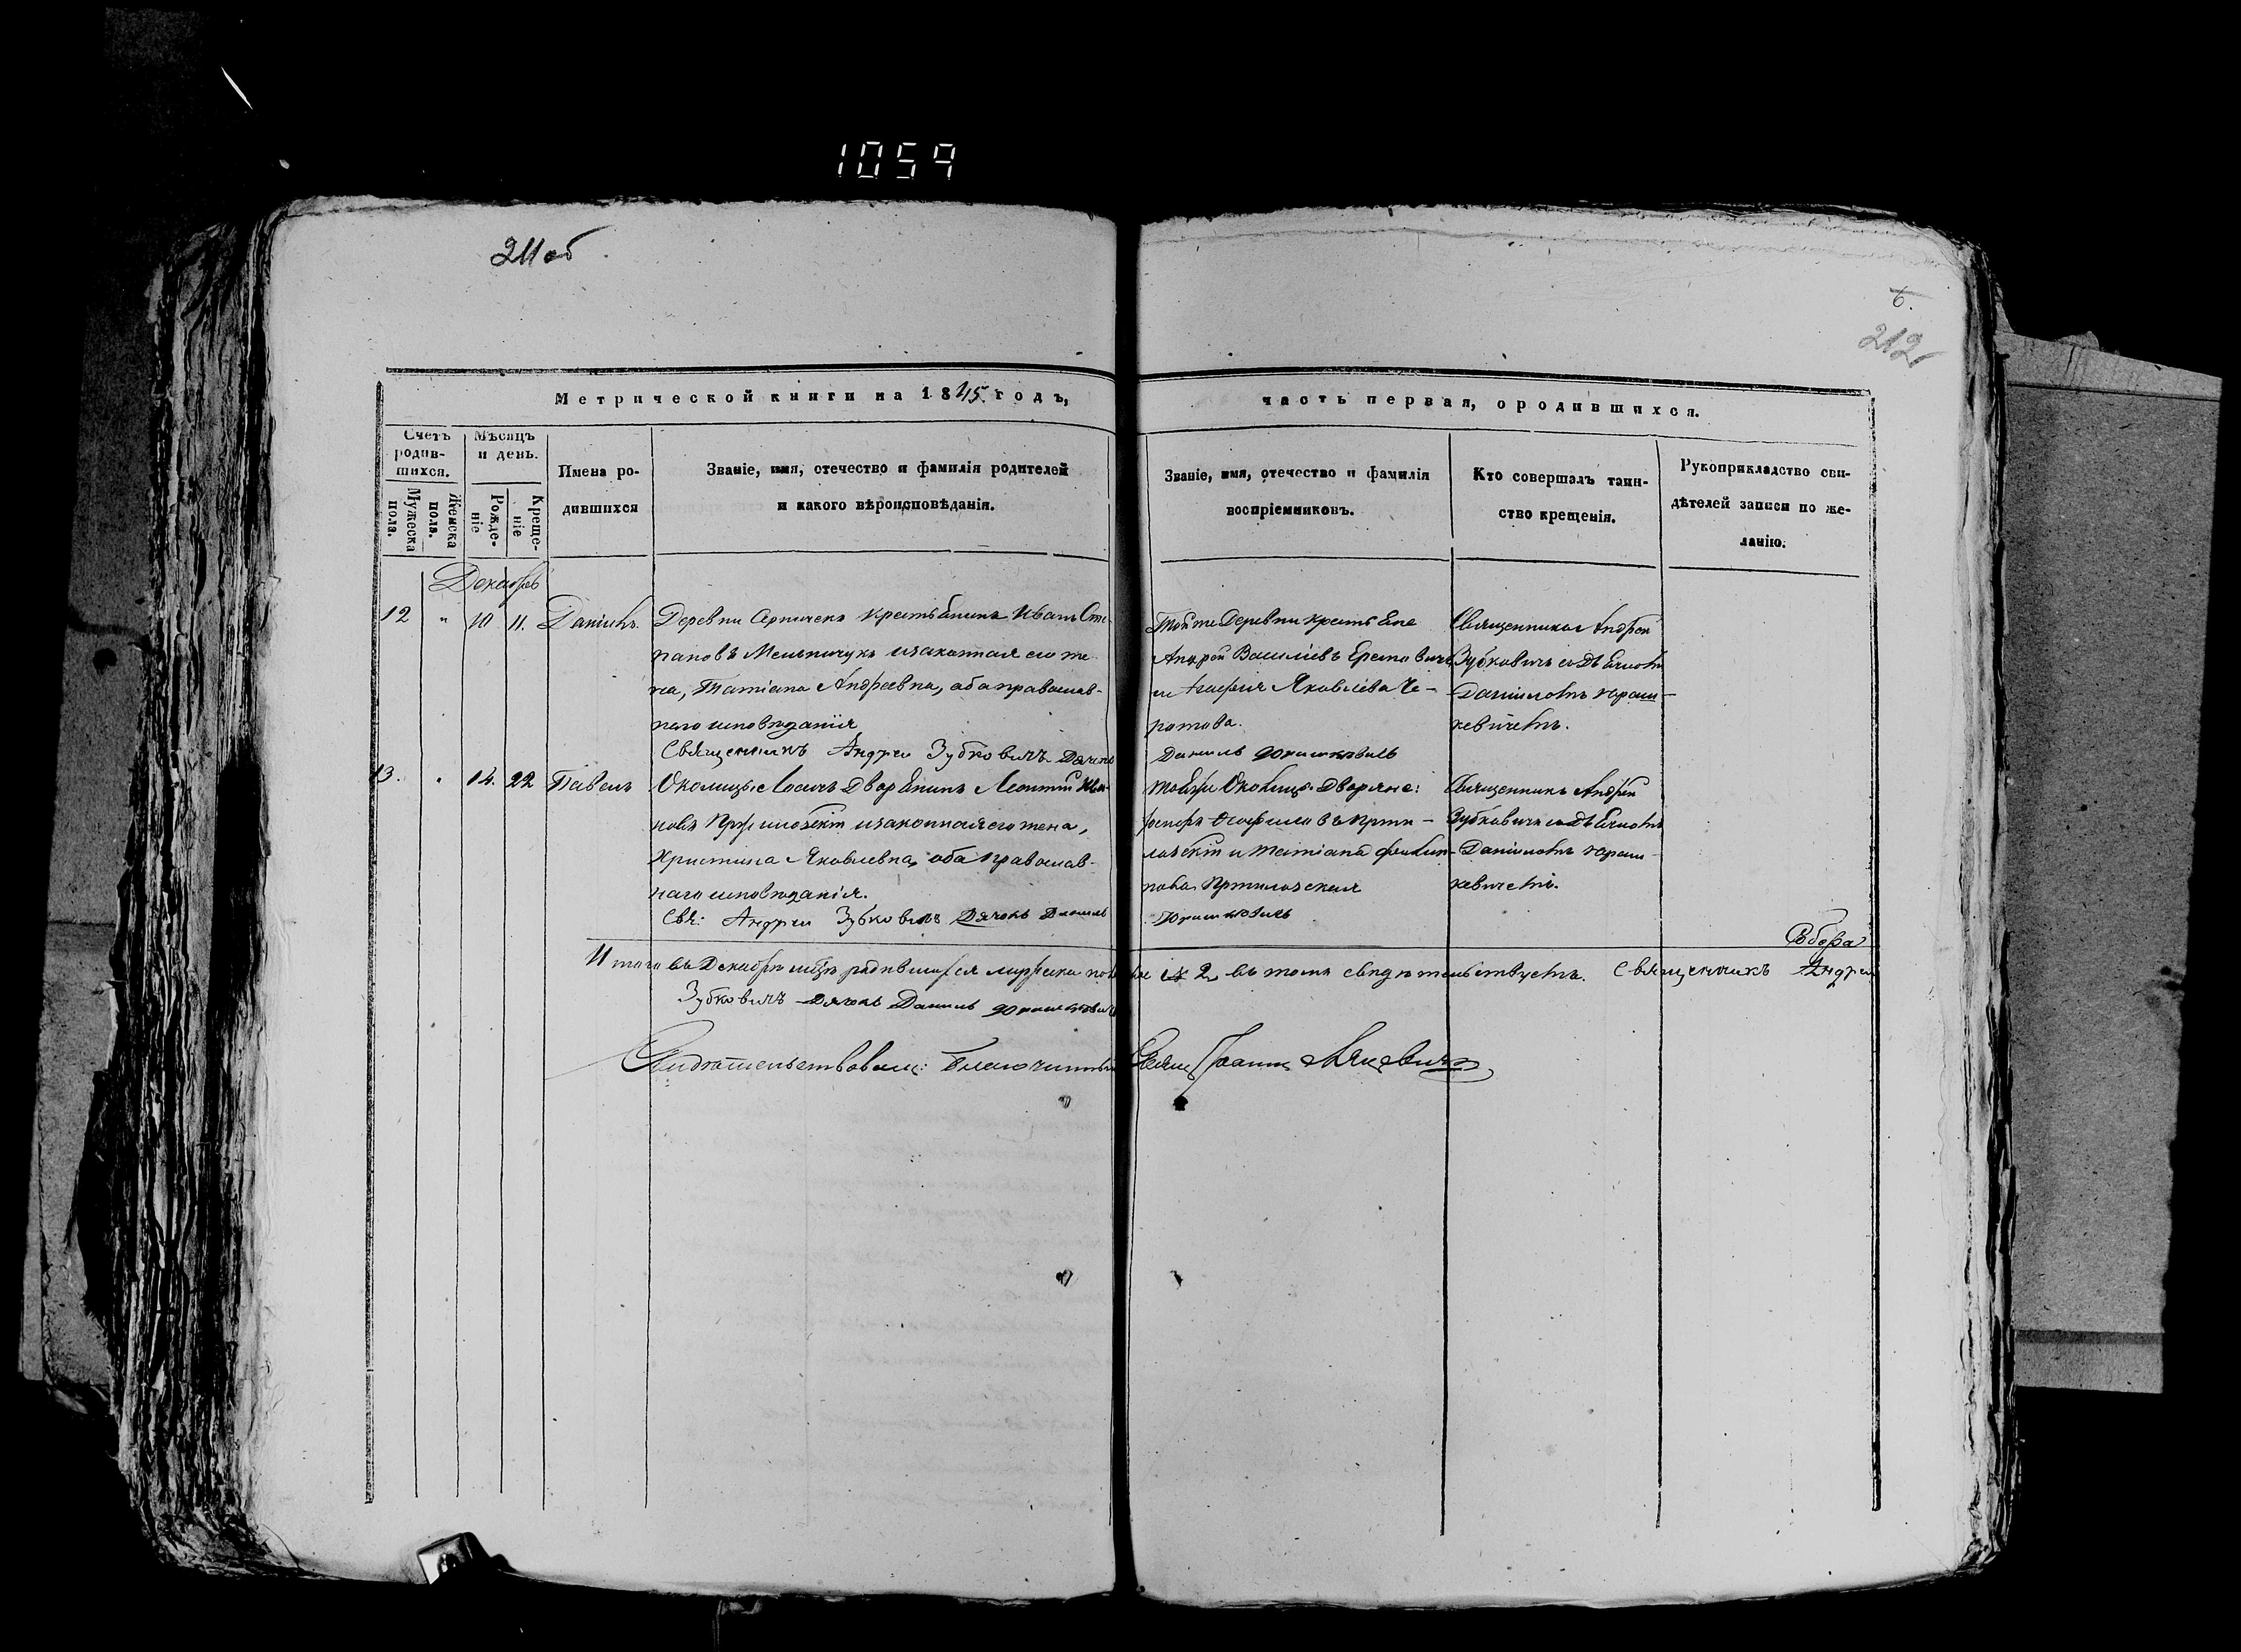 1059
211 об
6.
212
Метрической книги на 1845 годъ,
часть первая, о родившихся.
Счетъ родив-
шихся.
Мужеска пола.
Женска пола.
Мѣсяцъ и день.
Рожде-
ніе
Креще-
ніе
Имена ро-
дившихся
Званіе, имя, отечество и фамилія родителей
и какого вѣроисповѣданія.
Званіе, имя, отечество и фамилія
воспріемниковъ.
Кто совершалъ таин-
ство крещенія.
Рукоприкладство сви-
дѣтелей записи по же-
ланію.
Декабрь
12 " 10 11. Даніилъ.
Деревни крестьянинъ Иванъ Сте-
пановъ Мельничукъ и законная его же-
на, Татіана Андреевна, оба православ-
наго исповѣданія
Священникъ Андрей Зубковичъ Дячокъ
Той же Деревни крестьяне
Андрей Василіевъ Еремовичъ
и Агафія Яковлева Че-
ротова.
Даниль Юрашкевичъ
Священникъ Андрей
Зубковичъ съ Дьячкомъ
Даніиломъ Юраш-
кевичемъ.
13. " 14. 22 Павелъ
Околицы Лосичъ Дворянинъ Леонтій Ива-
новъ и законная его жена,
Христина Яковлевна, оба православ-
наго исповѣданія.
Свя: Андрей Зубковичъ Дячокъ Даниль
Той же Околицы Дворяне:
и Татіана Филип-
пова
Юрашкевичъ
Священникъ Андрей
Зубковичъ съ Дьячкомъ
Даніиломъ Юраш-
кевичемъ.
Итого въ Декабрѣ мцѣ родившихся мужеска пола 2, въ томъ свидѣтельствуемъ. Священникъ Андрей
Зубковичъ Дячокъ Даниль Юрашкевичъ
Свидѣтельствовалъ: Благочинный Свящ. Іоаннъ